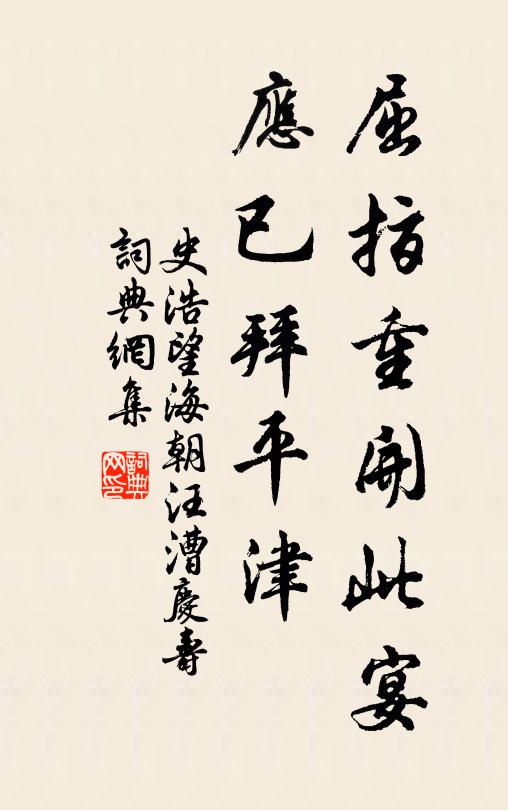 屈指重開此宴
應已拜平津
史浩望海朝汪漕慶壽
詞典網集
詞典網印